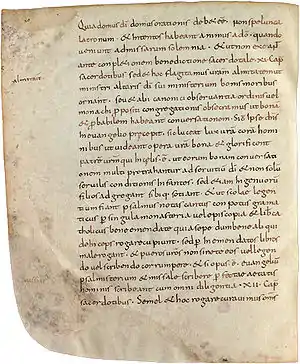 Quia domus dī domus orationis debet eē. non spelunca
latronum. et Intentos habeant animos ad dm̄ quando
veniunt ad missarum solemnia. et ut non exeant
ante completionem benedictionis sacerdotalis. XI. Cap
sacerdotibus. Sed et hoc flagitamus vrām almitatem ut
ministri altaris dī suū ministerium bonis moribus
ornent. seu alii canonici observantiae ordines vel
monachi propositi congregationes obsecramus ut bonā
et probabilem habeant conversationem. Sic ipse dn̄s
In evangelio praecepit. sic luceat lux vrā corā homi
nibus ut videant opera vrā bona et glorificent
patrē vrm̄ qui in celis ē. ut eorum bonam conversati
onem multi protrahantur ad servitiū dī. et non solū
servilis conditionis Infantes. sed etiam Ingenuorū
filios adgregent sibiq: sociant. et ut scolae legen
tium fiant. psalmos notas cantus compotus grama
ticus per singula monasteria vel episcopia et libros
catholicos bene emendate. quia sepe dum bene aliqui
dm̄ rogare cupiunt. sed per Inemendatos libros
male rogant. et pueros vrōs non sinete eos vel legen
do vel scribendo corrumpere. et si opus ē evangeliū
psalterium et missale scribere. perfectae aetatis
homines scribant cum omni diligentia. XII. Cap
sacerdotibus. Semel et hoc rogare curavimus oms